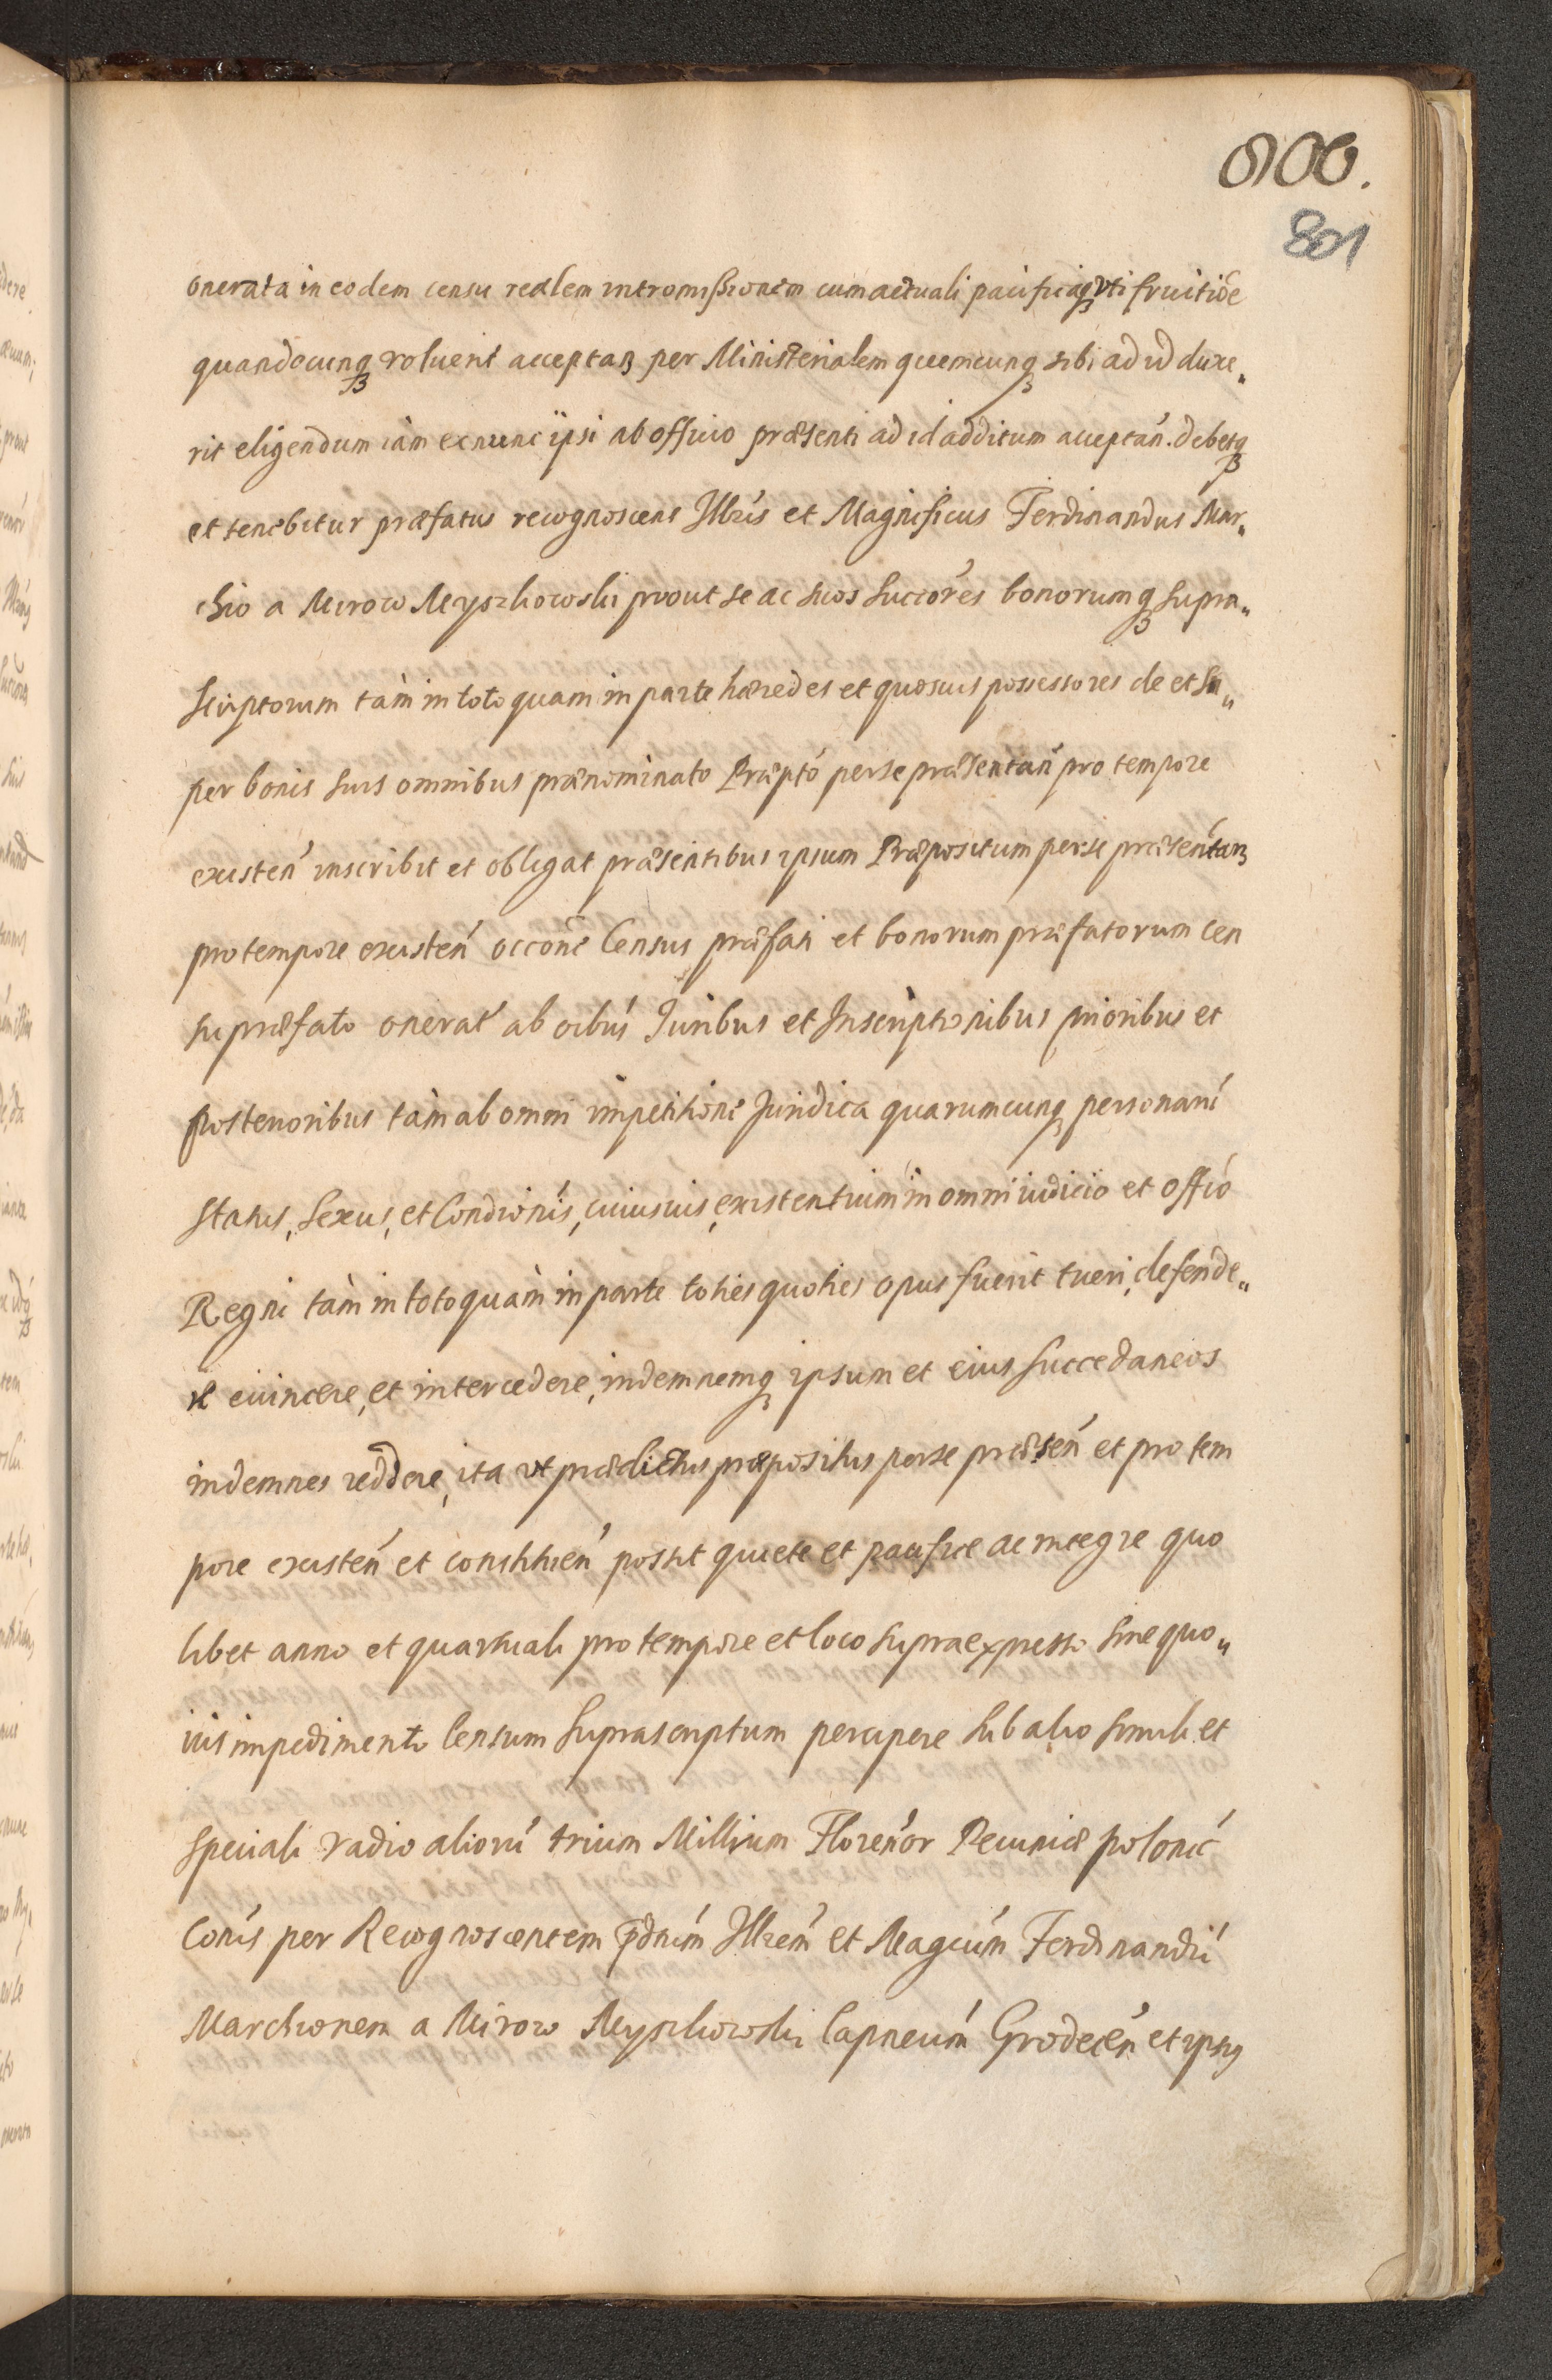 800.
801
onerata in eodem censu realem intromissionem cum actuali pacificaq3 vti fruitiõe
quandocunq3 voluerit acceptan3 per Ministerialem quemcunq3 sibi ad id duxe„
rit eligendum iàm ex nunc ipsi ab officio præsenti ad id additum acceptań. debetq3
et tenebitur præfatus recognoscens Illrís et Magnificus Ferdinandus Mar„
chio a Mirow Myszkowski prout se ac suos succórés bonorumq3 supra„
scriptorum tàm in toto quam in parte hæredes et quosuis possessores de et su„
per bonis suis omnibus prænominato Præptó per se præsentań pro tempore
existeń inscribit et obligat præsentibus ipsum Præpositum per se præsentan3
pro tempore existeń occóné Census præfati et bonorum præfatorum cen
su præfato onerat́ ab oibús Iuribus et Inscriptionibus prioribus et
posterioribus tàm ab omni impetitione Iuridica quarumcunq3 personarú
status, sexus, et Condiónis, cuiusuis, existentium in omni iudicio et offió
Regni tàm in toto quàm in parte toties quoties opus fuerit tueri, defende„
re euincere, et intercedere, indemnemq3 ipsum et eius succedaneos
indemnes reddere, ita vt prædictus præpositus per se præseń et pro tem
pore existeń et constitueń possit quiete et pacifice ac integre quo
libet anno et quartuali pro tempore et loco supraexpresso sine quo„
uis impedimento Censum suprascriptum percipere sub alio simili et
speciali vadio aliorú trium Millium Floreńor Pecuniæ polonić
Conís per Recognoscentem pdnúm Illrem et Magcúm Ferdinandú
Marchionem a Mirow Myszkowski Capneúm Grodecéń et ipsius